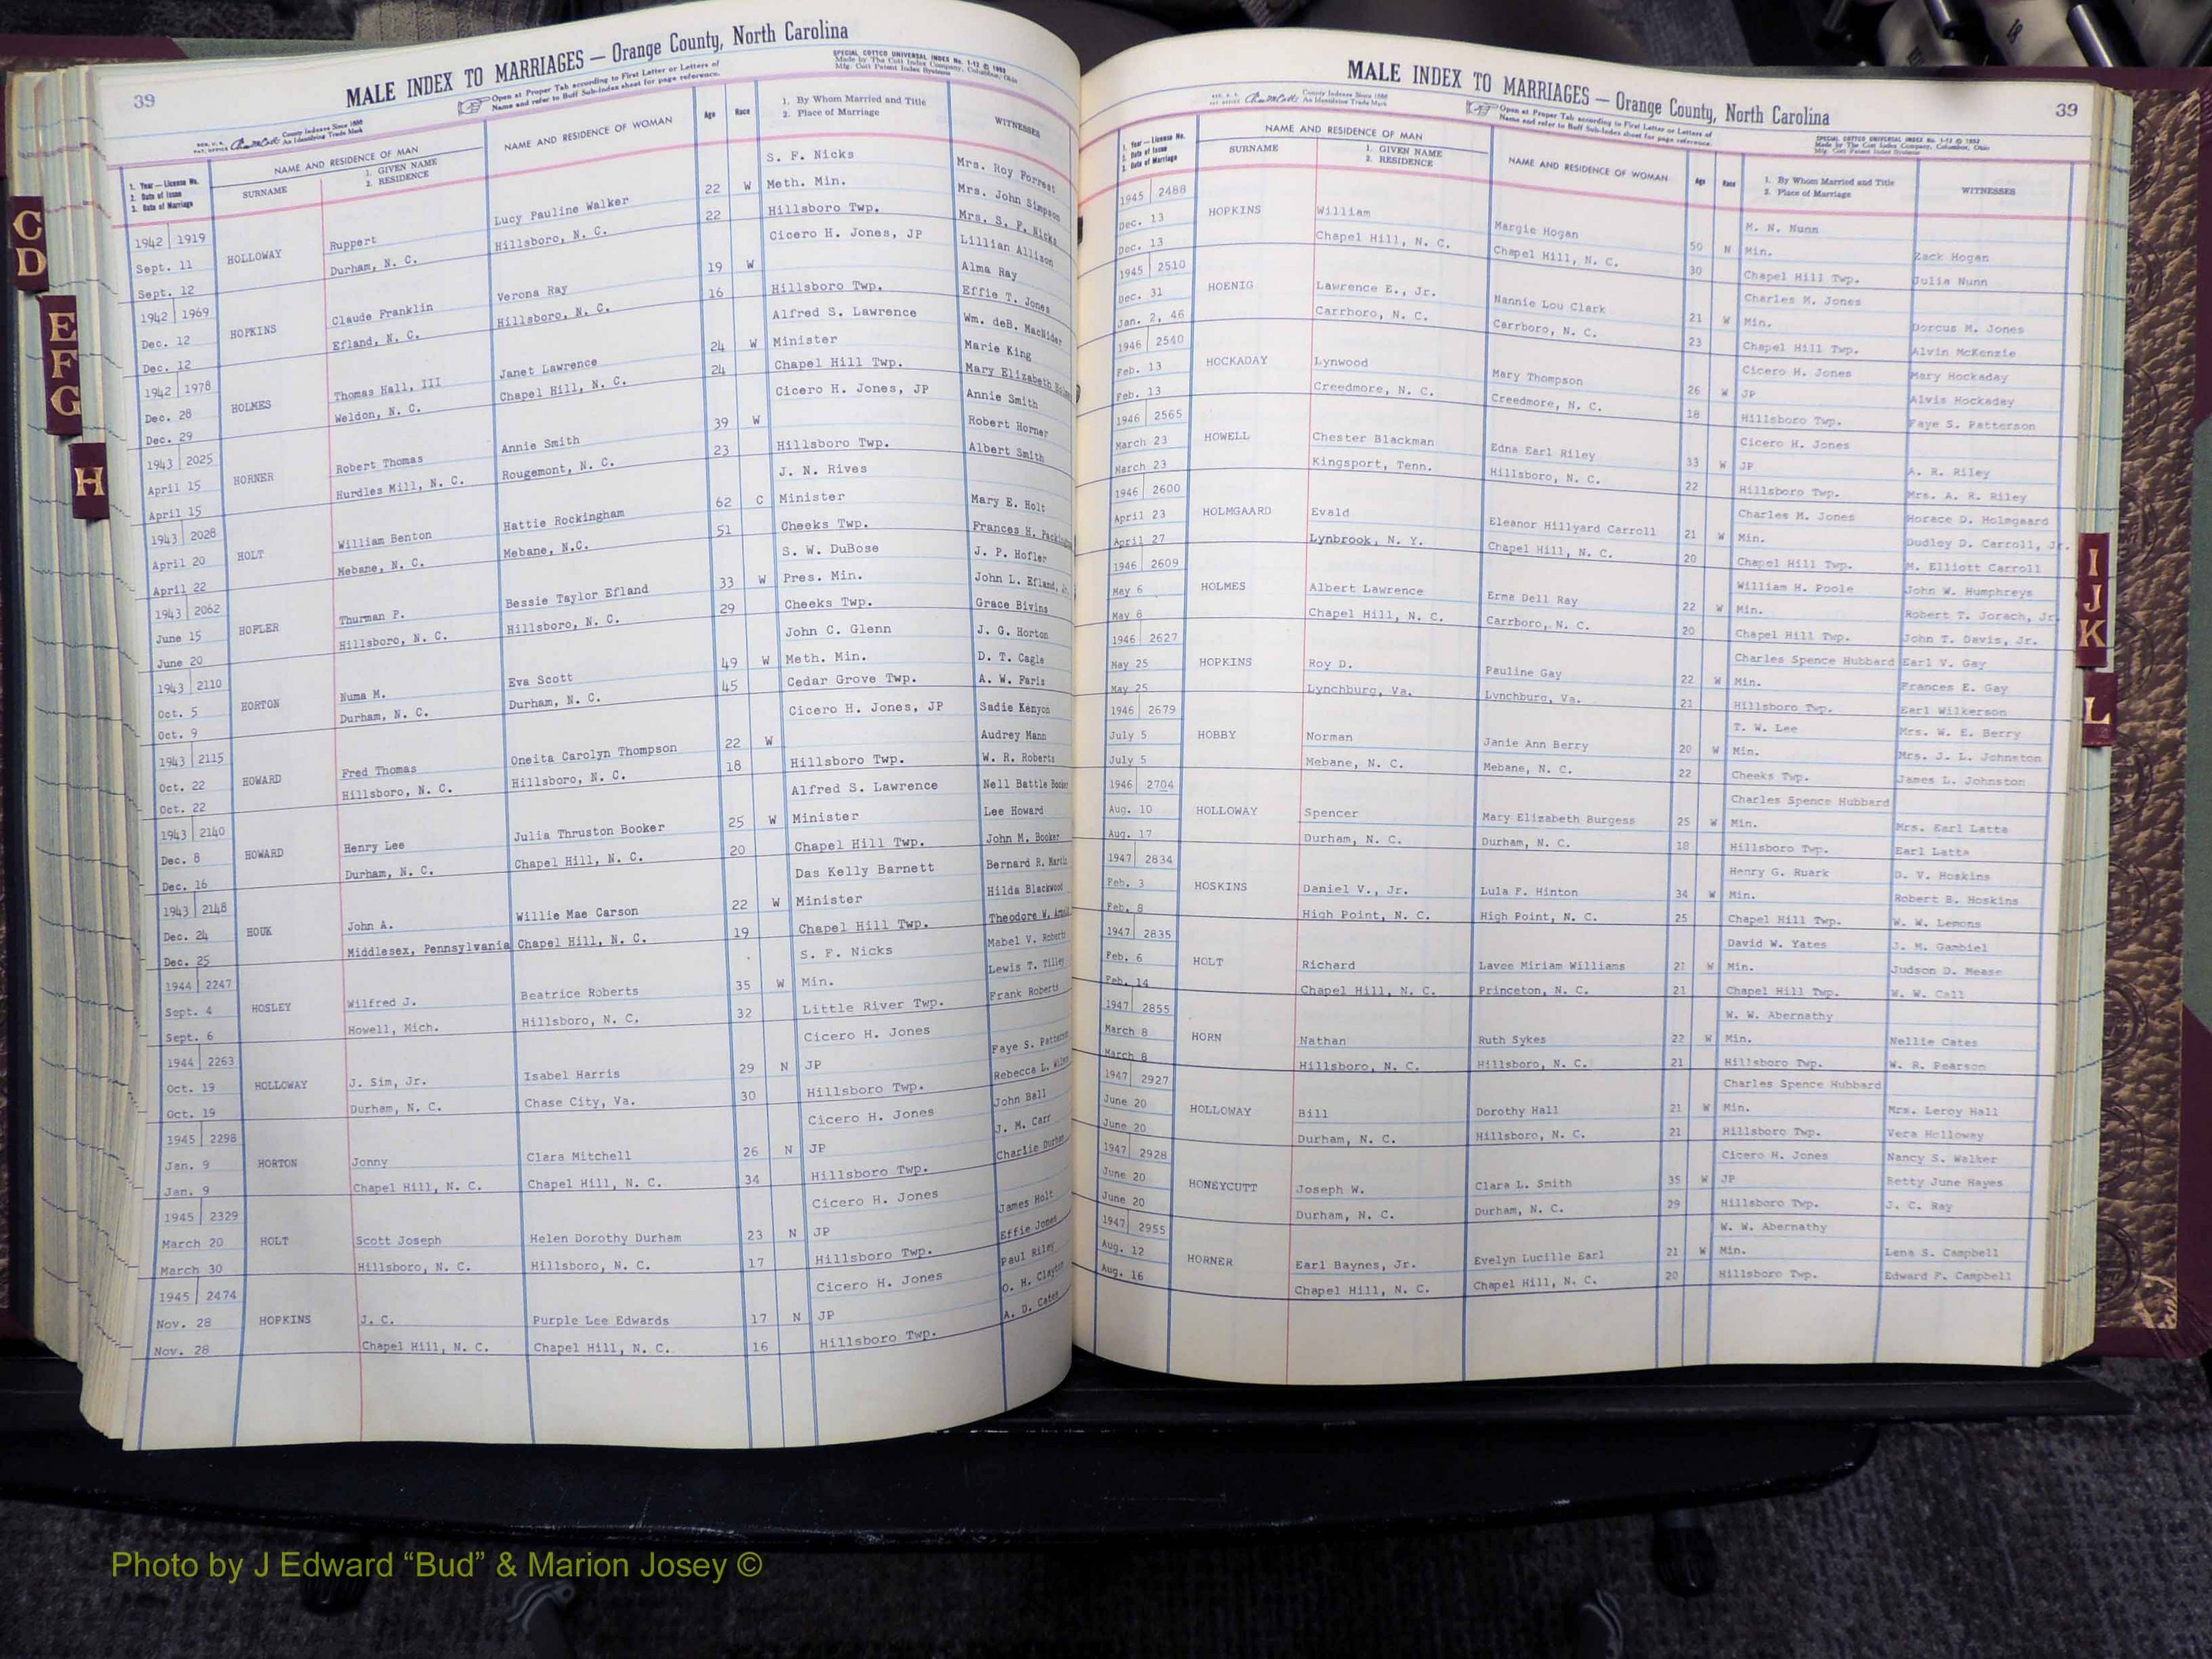 39
MALE INDEX TO MARRIAGES — Orange County, North Carolina
Open at Proper Tab according to First Letter or Letters of
Name and refer to Buff Sub-Index sheet for page reference.
SPECIAL COTTCO UNIVERSAL INDEX No. 1-12 © 1953
Made by The Cott Index Company, Columbus, Ohio
Mfg. Cott Patent Index Systems
County Indexes Since 1888
An Identifying Trade Mark
1. Year — License No.
2. Date of Issue
3. Date of Marriage
NAME AND RESIDENCE OF MAN
SURNAME
1. GIVEN NAME
2. RESIDENCE
NAME AND RESIDENCE OF WOMAN
Age
Race
1. By Whom Married and Title
2. Place of Marriage
WITNESSES
1942 1919 S. F. Nicks Mrs. Roy Forrest
Sept. 11 HOLLOWAY Ruppert Lucy Pauline Walker 22 W Meth. Min. Mrs. John Simpson
Sept. 12 Durham, N. C. Hillsboro, N. C. 22 Hillsboro Twp. Mrs. S. F. Nicks
1942 1969 Cicero H. Jones, JP Lillian Allison
Dec. 12 HOPKINS Claude Franklin Verona Ray 19 W Alma Ray
Dec. 12 Efland, N. C. Hillsboro, N. C. 16 Hillsboro Twp. Effie T. Jones
1942 1978 Alfred S. Lawrence Wm. deB. MacNider
Dec. 28 HOLMES Thomas Hall, III Janet Lawrence 24 W Minister Marie King
Dec. 29 Weldon, N. C. Chapel Hill, N. C. 24 Chapel Hill Twp. Mary Elizabeth
1943 2025 Cicero H. Jones, JP Annie Smith
April 15 HORNER Robert Thomas Annie Smith 39 W Robert Horner
April 15 Hurdles Mill, N. C. Rougemont, N. C. 23 Hillsboro Twp. Albert Smith
1943 2028 J. N. Rives
April 20 HOLT William Benton Hattie Rockingham 62 C Minister Mary E. Holt
April 22 Mebane, N. C. Mebane, N.C. 51 Cheeks Twp. Frances H.
1943 2062 S. W. DuBose J. P. Hofler
June 15 HOFLER Thurman P. Bessie Taylor Efland 33 W Pres. Min. John L. Efland, Jr.
June 20 Hillsboro, N. C. Hillsboro, N. C. 29 Cheeks Twp. Grace Bivins
1943 2110 John C. Glenn J. G. Horton
Oct. 5 HORTON Numa M. Eva Scott 49 W Meth. Min. D. T. Cagle
Oct. 9 Durham, N. C. Durham, N. C. 45 Cedar Grove Twp. A. W. Faris
1943 2115 Cicero H. Jones, JP Sadie Kenyon
Oct. 22 HOWARD Fred Thomas Oneita Carolyn Thompson 22 W Audrey Mann
Oct. 22 Hillsboro, N. C. Hillsboro, N. C. 18 Hillsboro Twp. W. R. Roberts
1943 2140 Alfred S. Lawrence Nell Battle Booker
Dec. 8 HOWARD Henry Lee Julia Thruston Booker 25 W Minister Lee Howard
Dec. 16 Durham, N. C. Chapel Hill, N. C. 20 Chapel Hill Twp. John M. Booker
1943 2148 Das Kelly Barnett Bernard R. Martin
Dec. 24 HOUK John A. Willie Mae Carson 22 W Minister Hilda Blackwood
Dec. 25 Middlesex, Pennsylvania Chapel Hill, N. C. 19 Chapel Hill Twp. Theodore W.
1944 2247 S. F. Nicks Mabel V. Roberts
Sept. 4 HOSLEY Wilfred J. Beatrice Roberts 35 W Min. Lewis T. Tilley
Sept. 6 Howell, Mich. Hillsboro, N. C. 32 Little River Twp. Frank Roberts
1944 2263 Cicero H. Jones
Oct. 19 HOLLOWAY J. Sim, Jr. Isabel Harris 29 N JP Faye S. Patterson
Oct. 19 Durham, N. C. Chase City, Va. 30 Hillsboro Twp. Rebecca L.
1945 2298 Cicero H. Jones John Ball
Jan. 9 HORTON Jonny Clara Mitchell 26 N JP J. M. Carr
Jan. 9 Chapel Hill, N. C. Chapel Hill, N. C. 34 Hillsboro Twp. Charlie Durham
1945 2329 Cicero H. Jones
March 20 HOLT Scott Joseph Helen Dorothy Durham 23 N JP James Holt
March 30 Hillsboro, N. C. Hillsboro, N. C. 17 Hillsboro Twp. Effie Jones
1945 2474 Cicero H. Jones Paul Riley
Nov. 28 HOPKINS J. C. Purple Lee Edwards 17 N JP O. H. Clayton
Nov. 28 Chapel Hill, N. C. Chapel Hill, N. C. 16 Hillsboro Twp. A. D. Cates
MALE INDEX TO MARRIAGES — Orange County, North Carolina
39
County Indexes Since 1888
An Identifying Trade Mark
Open at Proper Tab according to First Letter or Letters of
Name and refer to Buff Sub-Index sheet for page reference.
SPECIAL COTTCO UNIVERSAL INDEX No. 1-12 © 1953
Made by The Cott Index Company, Columbus, Ohio
Mfg. Cott Patent Index Systems
1. Year — License No.
2. Date of Issue
3. Date of Marriage
NAME AND RESIDENCE OF MAN
SURNAME
1. GIVEN NAME
2. RESIDENCE
NAME AND RESIDENCE OF WOMAN
Age
Race
1. By Whom Married and Title
2. Place of Marriage
WITNESSES
1945 2488 M. N. Nunn
Dec. 13 HOPKINS William Margie Hogan 50 N Min. Zack Hogan
Dec. 13 Chapel Hill, N. C. Chapel Hill, N. C. 30 Chapel Hill Twp. Julia Nunn
1945 2510 Charles M. Jones
Dec. 31 HOENIG Lawrence E., Jr. Nannie Lou Clark 21 W Min. Dorcus M. Jones
Jan. 2, 46 Carrboro, N. C. Carrboro, N. C. 23 Chapel Hill Twp. Alvin McKenzie
1946 2540 Cicero H. Jones Mary Hockaday
Feb. 13 HOCKADAY Lynwood Mary Thompson 26 W JP Alvis Hockaday
Feb. 13 Creedmore, N. C. Creedmore, N. C. 18 Hillsboro Twp. Faye S. Patterson
1946 2565 Cicero H. Jones
March 23 HOWELL Chester Blackman Edna Earl Riley 33 W JP A. R. Riley
March 23 Kingsport, Tenn. Hillsboro, N. C. 22 Hillsboro Twp. Mrs. A. R. Riley
1946 2600 Charles M. Jones Horace D. Holmgaard
April 23 HOLMGAARD Evald Eleanor Hillyard Carroll 21 W Min. Dudley D. Carroll, Jr.
April 27 Lynbrook, N. Y. Chapel Hill, N. C. 20 Chapel Hill Twp. M. Elliott Carroll
1946 2609 William H. Poole John W. Humphreys
May 6 HOLMES Albert Lawrence Erma Dell Ray 22 W Min. Robert T. Jorach, Jr.
May 8 Chapel Hill, N. C. Carrboro, N. C. 20 Chapel Hill Twp. John T. Davis, Jr.
1946 2627 Charles Spence Hubbard Earl V. Gay
May 25 HOPKINS Roy D. Pauline Gay 22 W Min. Frances E. Gay
May 25 Lynchburg, Va. Lynchburg, Va. 21 Hillsboro Twp. Earl Wilkerson
1946 2679 T. W. Lee Mrs. W. E. Berry
July 5 HOBBY Norman Janie Ann Berry 20 W Min. Mrs. J. L. Johnston
July 5 Mebane, N. C. Mebane, N. C. 22 Cheeks Twp. James L. Johnston
1946 2704 Charles Spence Hubbard
Aug. 10 HOLLOWAY Spencer Mary Elizabeth Burgess 25 W Min. Mrs. Earl Latta
Aug. 17 Durham, N. C. Durham, N. C. 18 Hillsboro Twp. Earl Latta
1947 2834 Henry G. Ruark D. V. Hoskins
Feb. 3 HOSKINS Daniel V., Jr. Lula F. Hinton 34 W Min. Robert B. Hoskins
Feb. 8 High Point, N. C. High Point, N. C. 25 Chapel Hill Twp. W. W. Lemons
1947 2835 David W. Yates J. M. Gambiel
Feb. 6 HOLT Richard Lavee Miriam Williams 21 W Min. Judson D. Mease
Feb. 14 Chapel Hill, N. C. Princeton, N. C. 21 Chapel Hill Twp. W. W. Call
1947 2855 W. W. Abernathy
March 8 HORN Nathan Ruth Sykes 22 W Min. Nellie Cates
March 8 Hillsboro, N. C. Hillsboro, N. C. 21 Hillsboro Twp. W. R. Pearson
1947 2927 Charles Spence Hubbard
June 20 HOLLOWAY Bill Dorothy Hall 21 W Min. Mrs. Leroy Hall
June 20 Durham, N. C. Hillsboro, N. C. 21 Hillsboro Twp. Vera Holloway
1947 2928 Cicero H. Jones Nancy S. Walker
June 20 HONEYCUTT Joseph W. Clara L. Smith 35 W JP Betty June Hayes
June 20 Durham, N. C. Durham, N. C. 29 Hillsboro Twp. J. C. Ray
1947 2955 W. W. Abernathy
Aug. 12 HORNER Earl Baynes, Jr. Evelyn Lucille Earl 21 W Min. Lena S. Campbell
Aug. 16 Chapel Hill, N. C. Chapel Hill, N. C. 20 Hillsboro Twp. Edward F. Campbell
C
D
E
F
G
H
I
J
K
L
Photo by J Edward “Bud” & Marion Josey ©